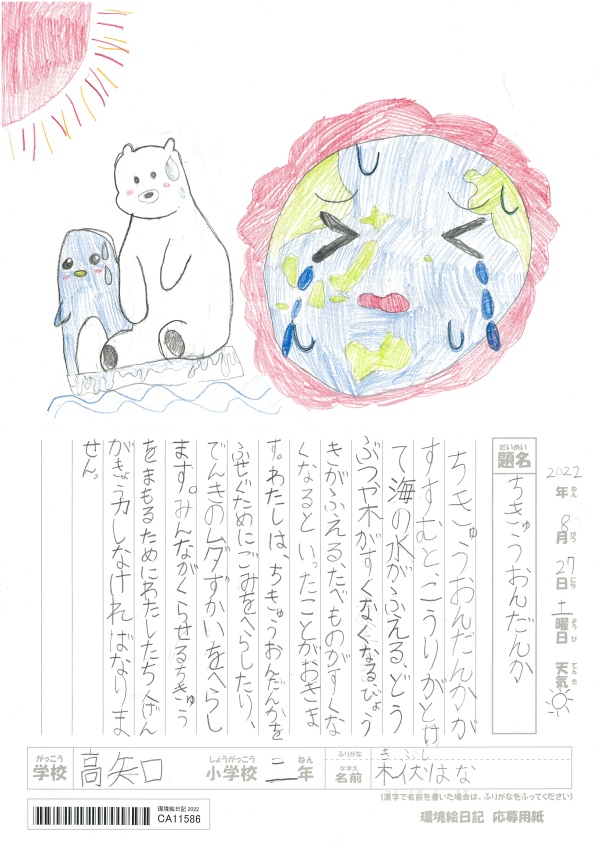 2022年ねん8月がつ27日にち土曜日ようび天気てんき
だいめい
題名
ちきゅうおんだんか
ちきゅうおんだんかが
すすむと、こうりがとけ
て海の水がふえる、どう
ぶつや木がすくなくなる、びょう
きがふえる、たべものがすくな
くなるといったことがおきま
す。わたしは、ちきゅうおんだんかを
ふせぐためにごみをへらしたり、
でんきのムダずかいをへらし
ます。みんながくらせるちきゅう
をまもるためにわたしたち人げん
がきょう力しなければなりま
せん。
がっこう しょうがっこう ねん
学校 高矢口 小学校 二年
ふりがな きぶし
なまえ
名前 木伏はな
(漢字で名前を書いた場合は、ふりがなをふってください)
環境絵日記 応募用紙
環境絵日記 2022
CA11586